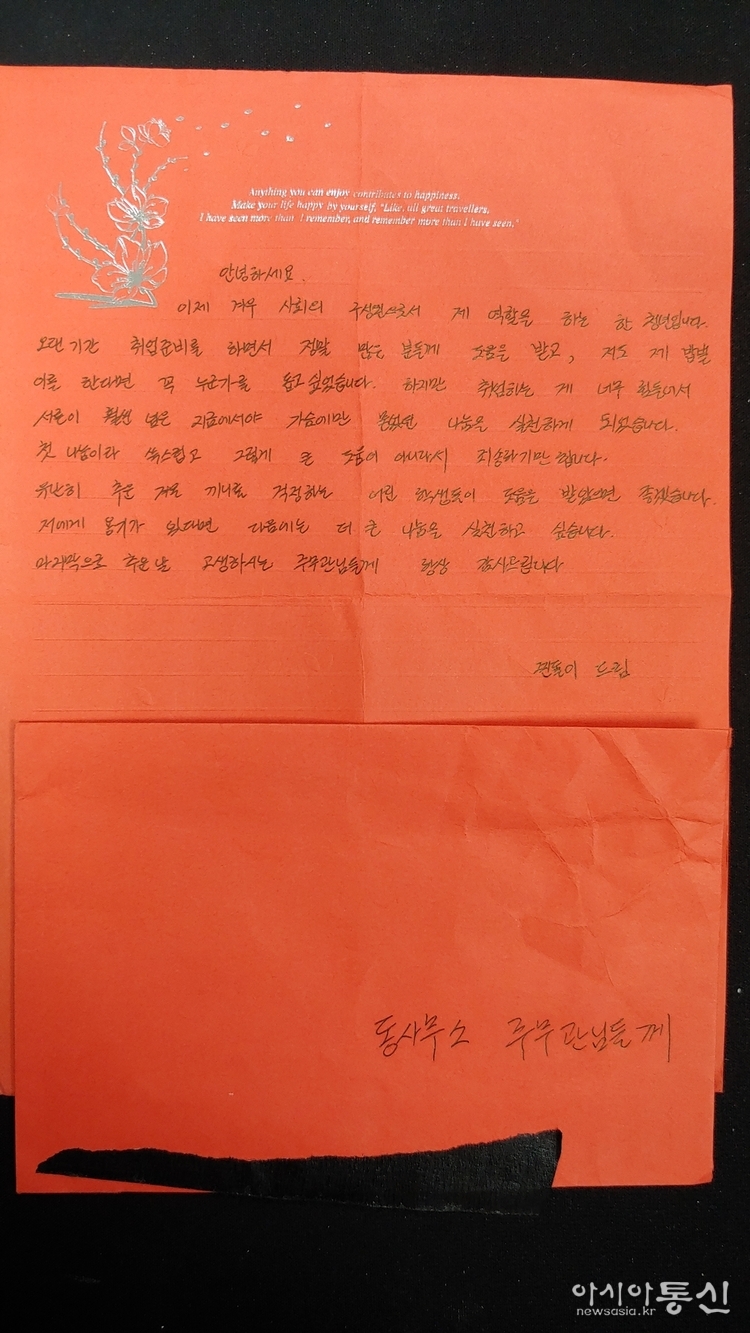 Anything you can enjoy contributes to happiness.
Make your life happy by yourself, "Like, all great travellers,
I have seen more than I remember, and remember more than I have seen."
안녕하세요.
이제 겨우 사회의 구성원으로서 제 역할을 하는 한 청년입니다.
오랜기간 취업준비를 하면서 정말 많은 분들께 도움을 받고, 저도 제 밥벌
이를 한다면 꼭 누군가를 돕고 싶었습니다. 하지만 취업하는 게 너무 힘들어서
서른이 훨씬 넘은 지금에서야 가슴에만 품었던 나눔을 실천하게 되었습니다.
첫 나눔이라 쑥스럽고 그렇게 큰 도움이 아니라서 죄송하기만 합니다.
유난히 추운 겨울 끼니를 걱정하는 어린 학생들이 도움을 받았으면 좋겠습니다.
저에게 용기가 있다면 다음에는 더 큰 나눔을 실천하고 싶습니다.
마지막으로 추운 날 고생하시는 주무관님들께 항상 감사드립니다
드림
동사무소 주무관님들께
아시아통신
newsasia.kr